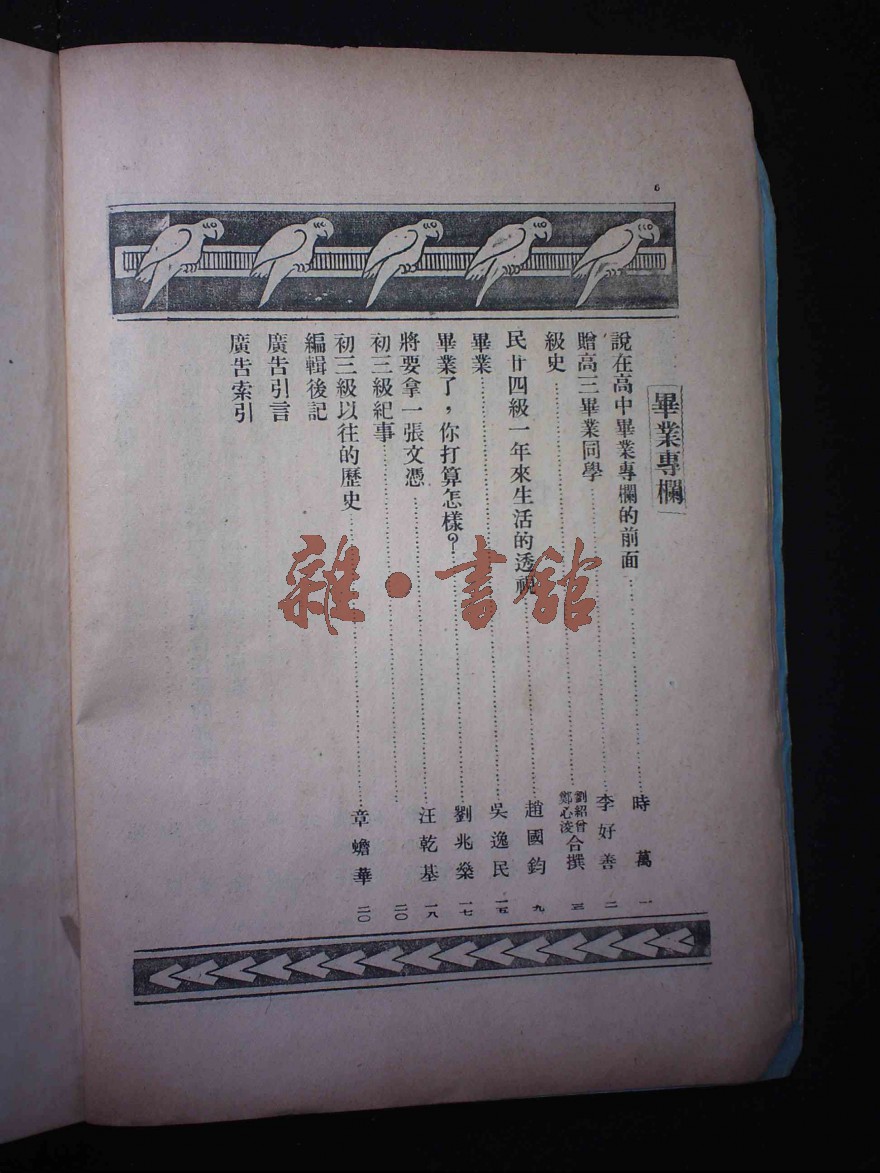 6
畢業專欄
說在高中畢業專欄的前面……時萬 一
贈高三畢業同學……李好善 二
級史……劉紹曾 鄭心浚 合撰 三
民廿四級一年來生活的透視……趙國鈞 九
畢業……吳逸民 一五
畢業了，你打算怎樣？……劉兆燊 一七
將要拿一張文憑……汪乾基 一八
初三級紀事……二〇
初三級以往的歷史……章蟾華 二〇
編輯後記
廣告引言
廣告索引
雜·書館